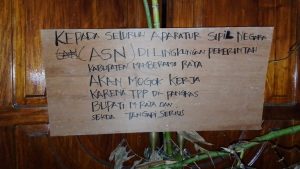 KEPADA SELURUH APARATUR SIPIL NEGARA
(ASN) DI LINGKUNGAN PEMERINTAH
KABUPATEN MAMBERAMO RAYA
AKAN MOGOK KERJA
KARENA TPP DI PANGKAS
BUPATI M RAYA DAN
SEKDA TANGAPI SERIUS